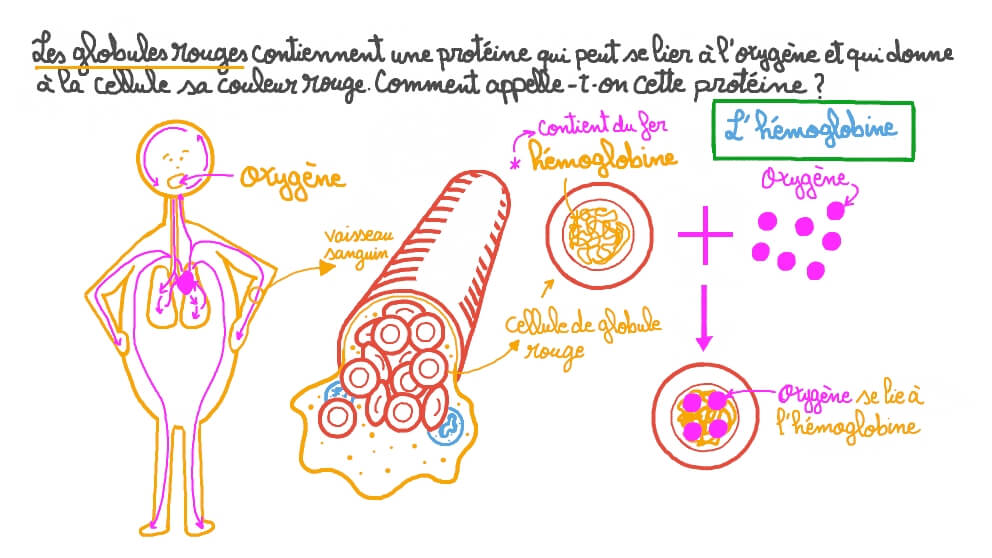 Les globules rouges contiennent une protéine qui peut se lier à l'oxygène et qui donne
à la cellule sa couleur rouge. Comment appelle-t-on cette protéine ?
L'hémoglobine
* contient du fer
hémoglobine
Oxygène
Oxygène
vaisseau
sanguin
cellule de globule
rouge
Oxygène se lie à
l'hémoglobine